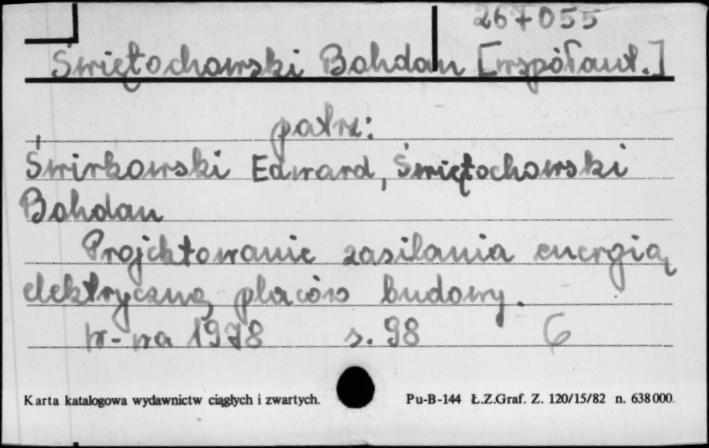 267055
Świętochowski Bohdan [współaut.]
patrz:
Świrkowski Edward, Świętochowski
Bohdan
Projektowanie zasilania energią
elektryczną placów budowy.
W-wa 1978 s. 98 6
Karta katalogowa wydawnictw ciągłych i zwartych. Pu-B-144 Ł.Z.Graf. Z. 120/15/82 n. 638000.